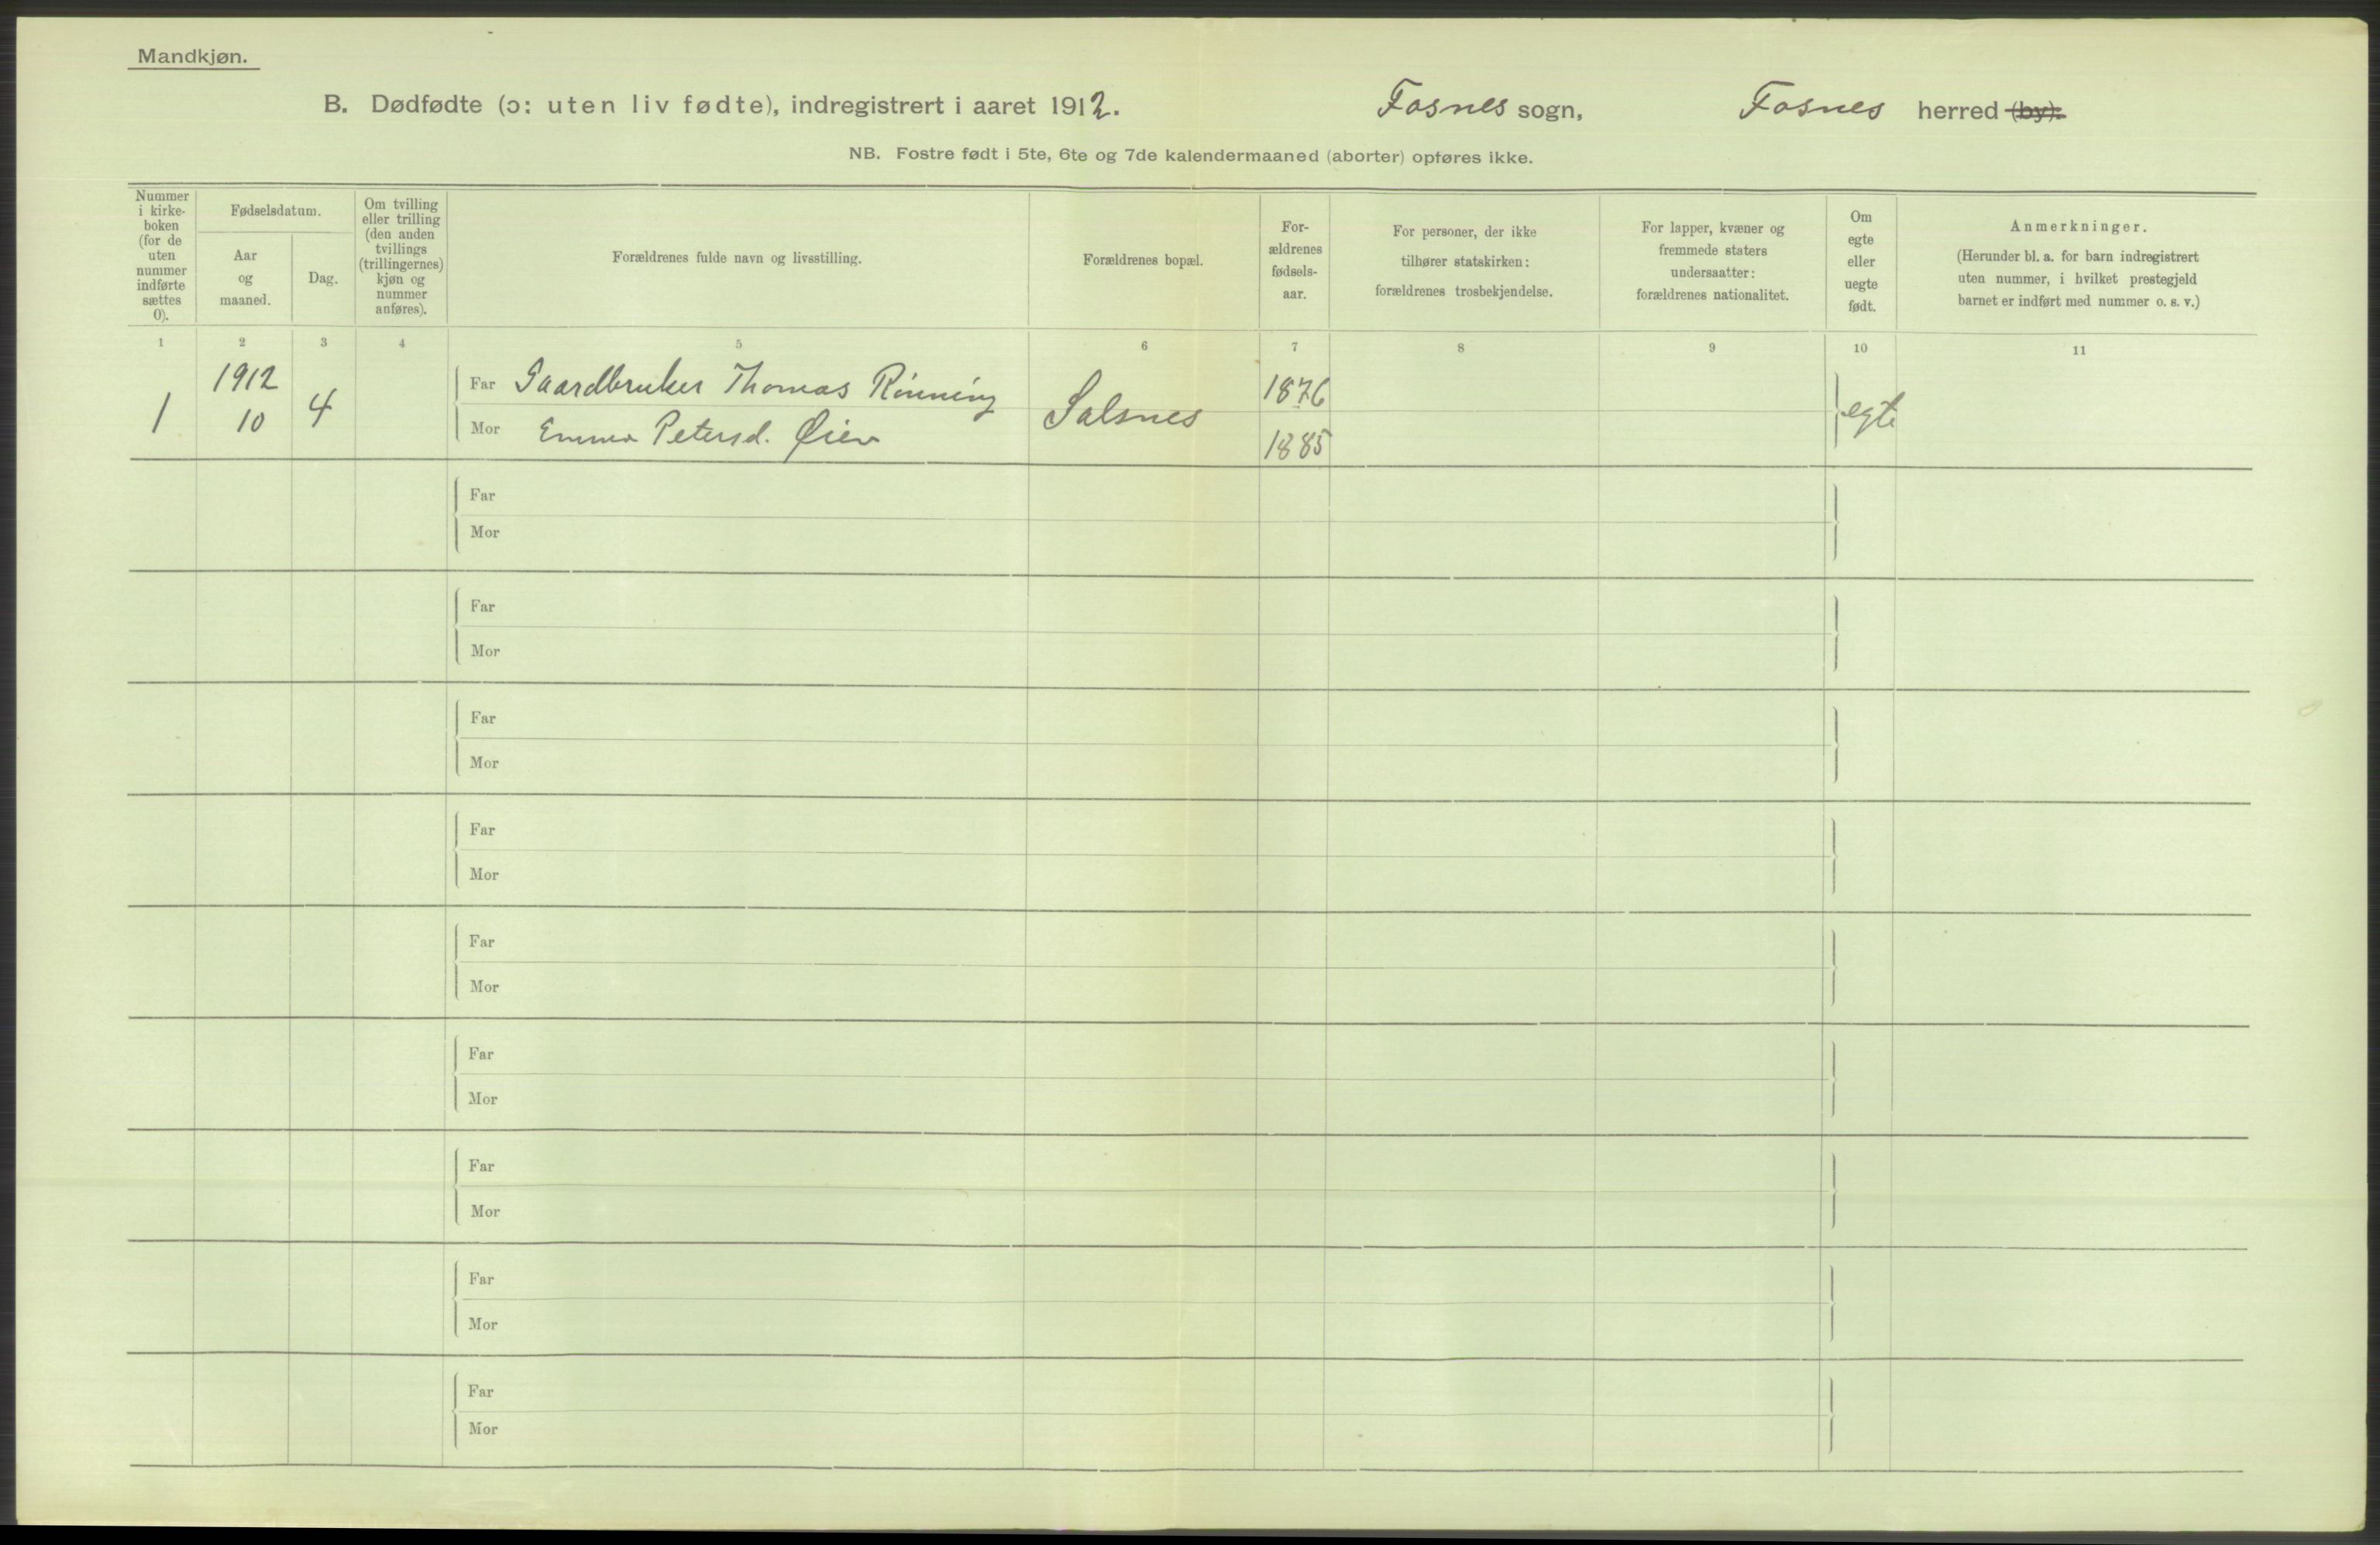 Mandkjøn.
B. Dødfødte (ɔ: uten liv fødte), indregistrert i aaret 1912. Fosnes sogn, Fosnes herred (by).
NB. Fostre født i 5te, 6te og 7de kalendermaaned (aborter) opføres ikke.
Nummer
i kirke-
boken
(for de
uten
nummer
indførte
sættes
0).
Fødselsdatum.
Aar
og
maaned.
Dag.
Om tvilling
eller trilling
(den anden
tvillings
(trillingernes)
kjøn og
nummer
anføres).
Forældrenes fulde navn og livsstilling.
Forældrenes bopæl.
For-
ældrenes
fødsels-
aar.
For personer, der ikke
tilhører statskirken:
forældrenes trosbekjendelse.
For lapper, kvæner og
fremmede staters
undersaatter:
forældrenes nationalitet.
Om
egte
eller
uegte
født.
Anmerkninger.
(Herunder bl. a. for barn indregistrert
uten nummer, i hvilket prestegjeld
barnet er indført med nummer o. s. v.)
1 2 3 4 5 6 7 8 9 10 11
1912
1 10 4
Far Gaardbruker Thomas Rönning
Mor Emma Petersd. Øien
Salsnes
1876
1885
egte
Far
Mor
Far
Mor
Far
Mor
Far
Mor
Far
Mor
Far
Mor
Far
Mor
Far
Mor
Far
Mor